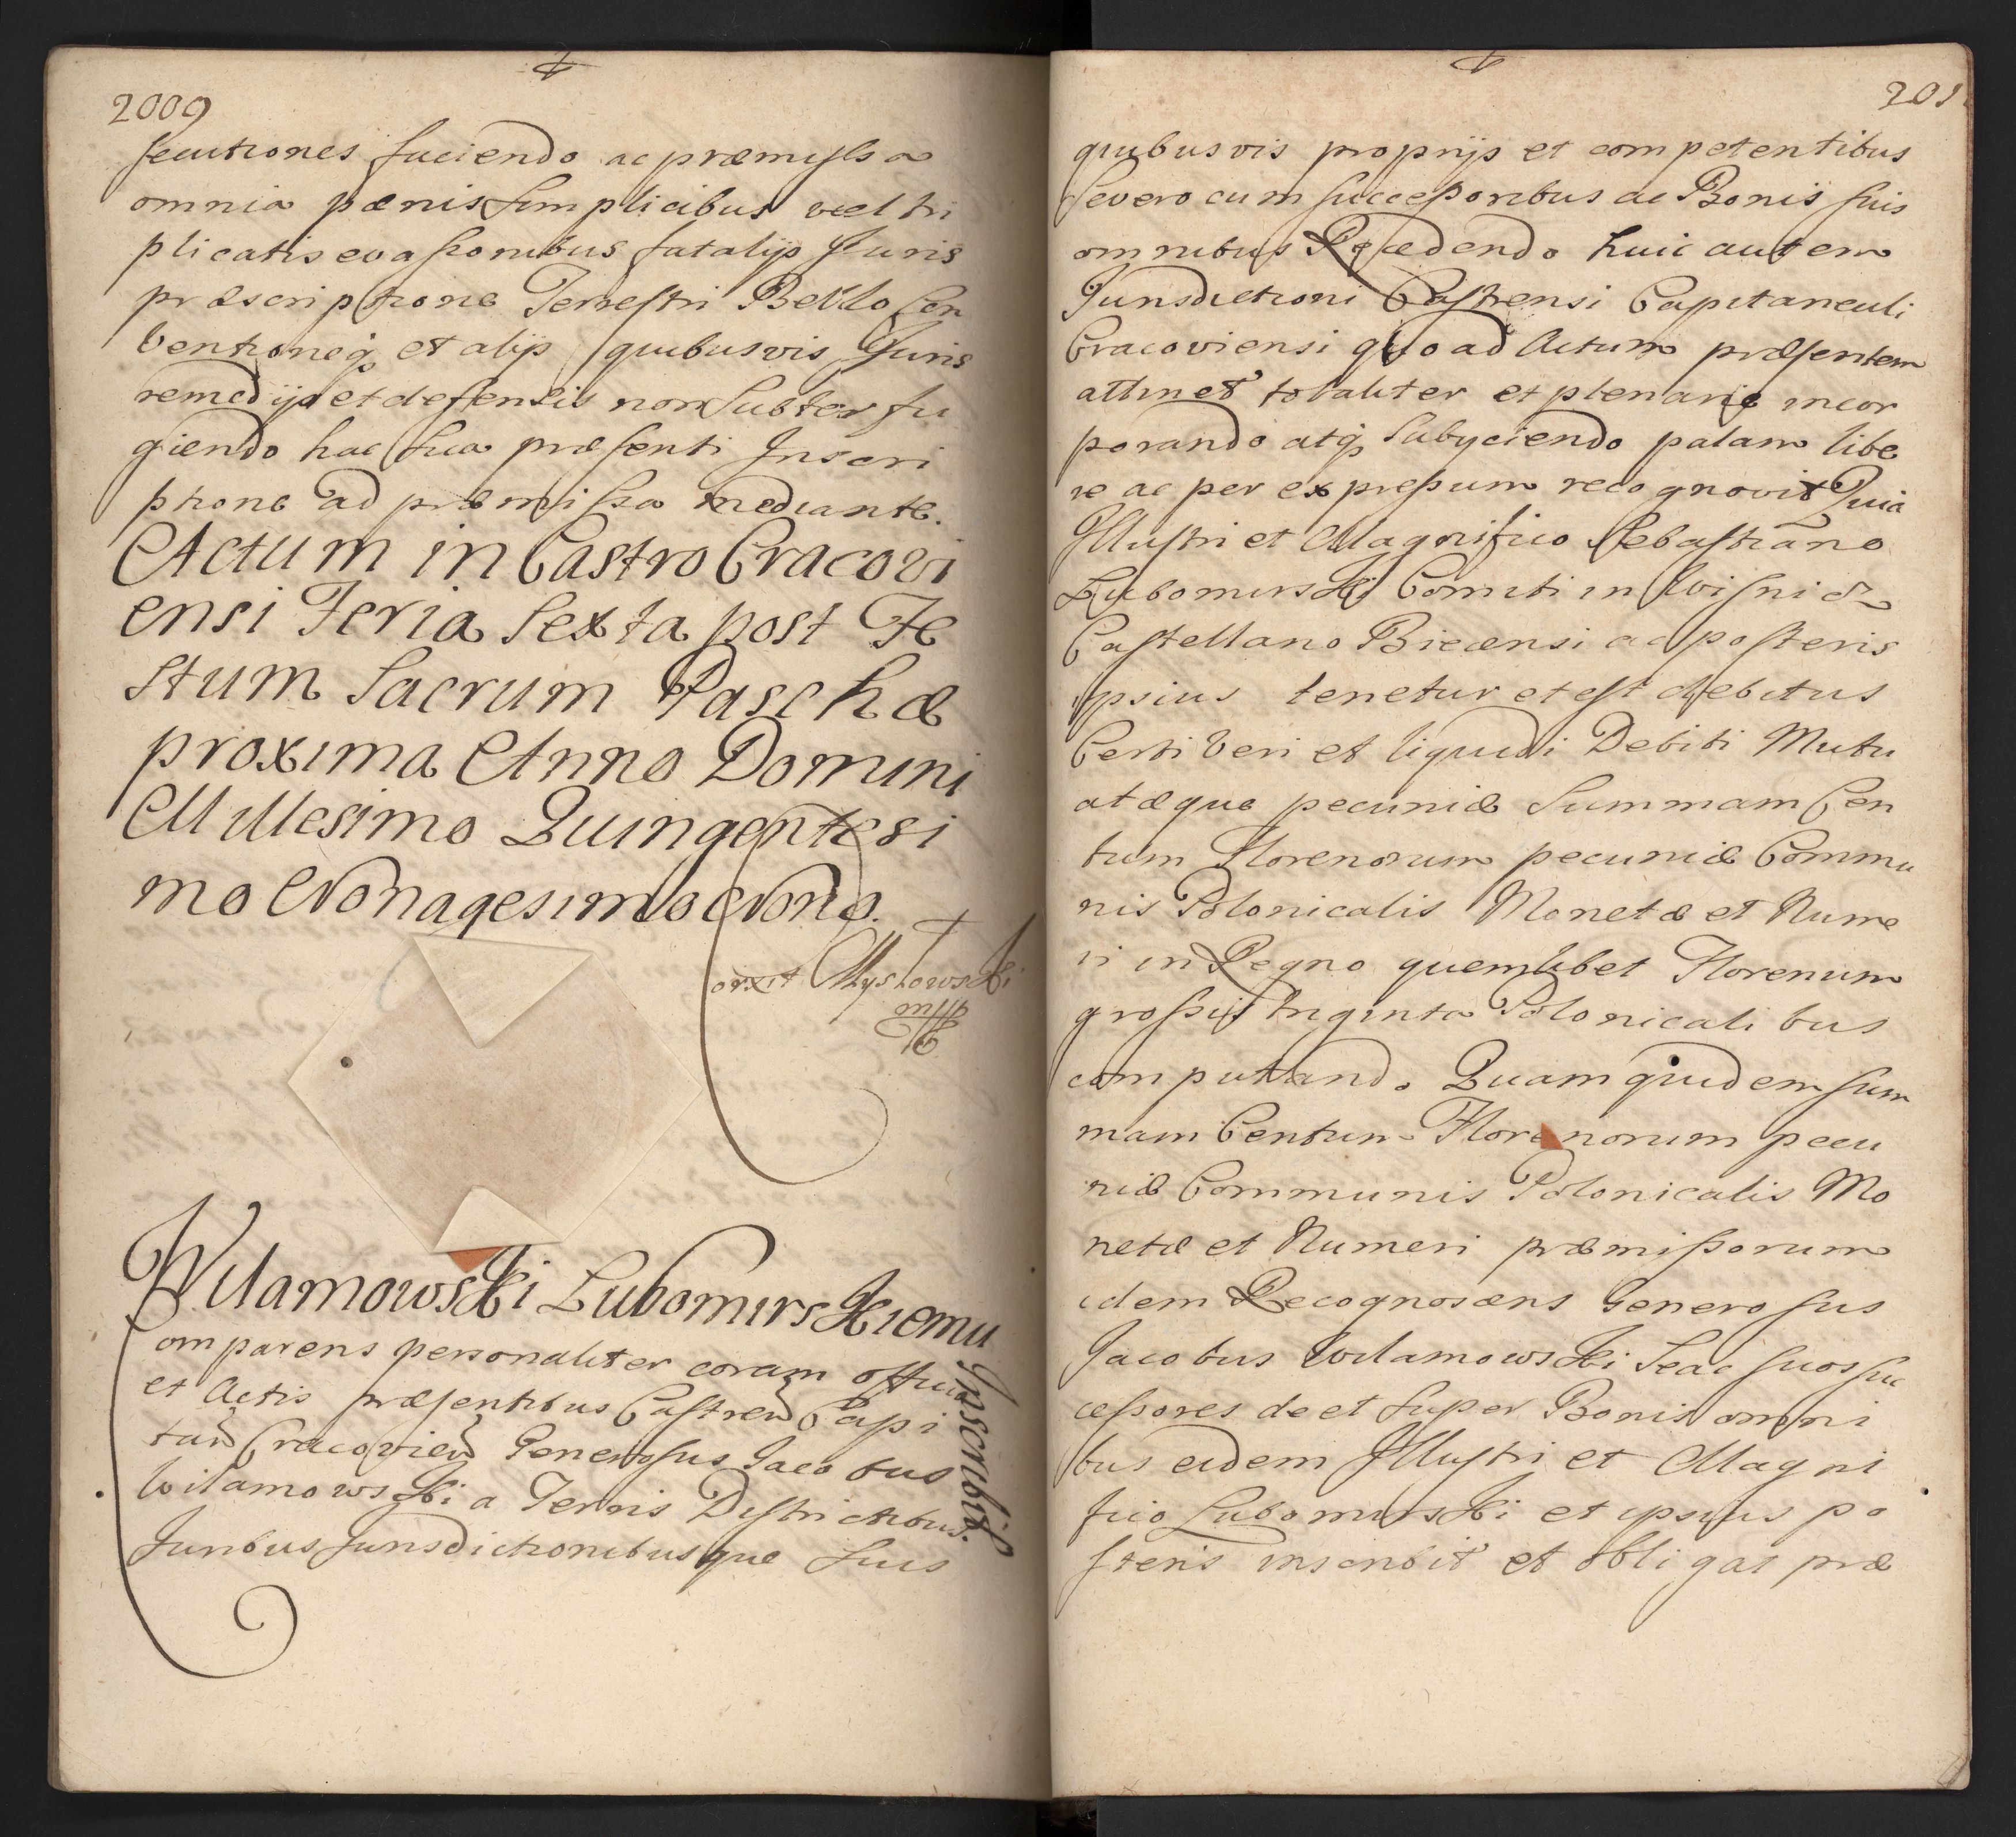 2009
secutiones faciendo ac præmyssa
omnia pænis simplicibus vel tri
plicatis evasionibus fatalijs Juris
præscriptione Terrestri Bello Con
ventioneq₃ et alijs quibusvis Juris
remedijs et defensis non subterfu
giendo hac sua præsenti Inscri
ptione ad præmissa mediante.
Actum in Castro Cracovi
ensi Feria Sexta post Fe
stum Sacrum Paschæ
proxima Anno Domini
Millesimo Quingentesi
mo Nonagesimo Nono.
Wilamowski Lubomirskiemu
Inscribit
omparens personaliter coram officio
et Actis præsentibus Castren Capi
tan Cracovien Generosus Jacobus
Wilamowski a Terris Districtibus
Juribus Jurisdictionibusque suis
201
quibusvis proprijs et competentibus
se vero cum successoribus ac Bonis suis
omnibus Recedendo huic autem
Jurisdictioni Castrensi Capitaneali
Cracoviensi quo ad Actum præsentem
attinet totaliter et plenarie incor
porando atq₃ Subyciendo palam libe
re ac per expressum recognovit Quia
Illustri et Magnifico Sebastiano
Lubomirski Comiti in Wisnicz
Castellano Biecensi ac posteris
ipsius tenetur et est debitus
Certi Veri et liquidi Debiti Mutu
atæque pecuniæ Summam Cen
tum Florenorum pecuniæ Commu
nis Polonicalis Monetæ et Nume
ri in Regno quemlibet Florenum
grossis triginta Polonicalibus
computando. Quam quidem sum
mam Centum Florenorum pecu
niæ Communis Polonicalis Mo
netæ et Numeri præmissorum
idem Recognoscens Generosus
Jacobus Wilamowski Se ac suos suc
cessores de et super Bonis omni
bus eidem Illustri et Magni
fico Lubomirski et ipsius po
steris inscribit et obligat præ